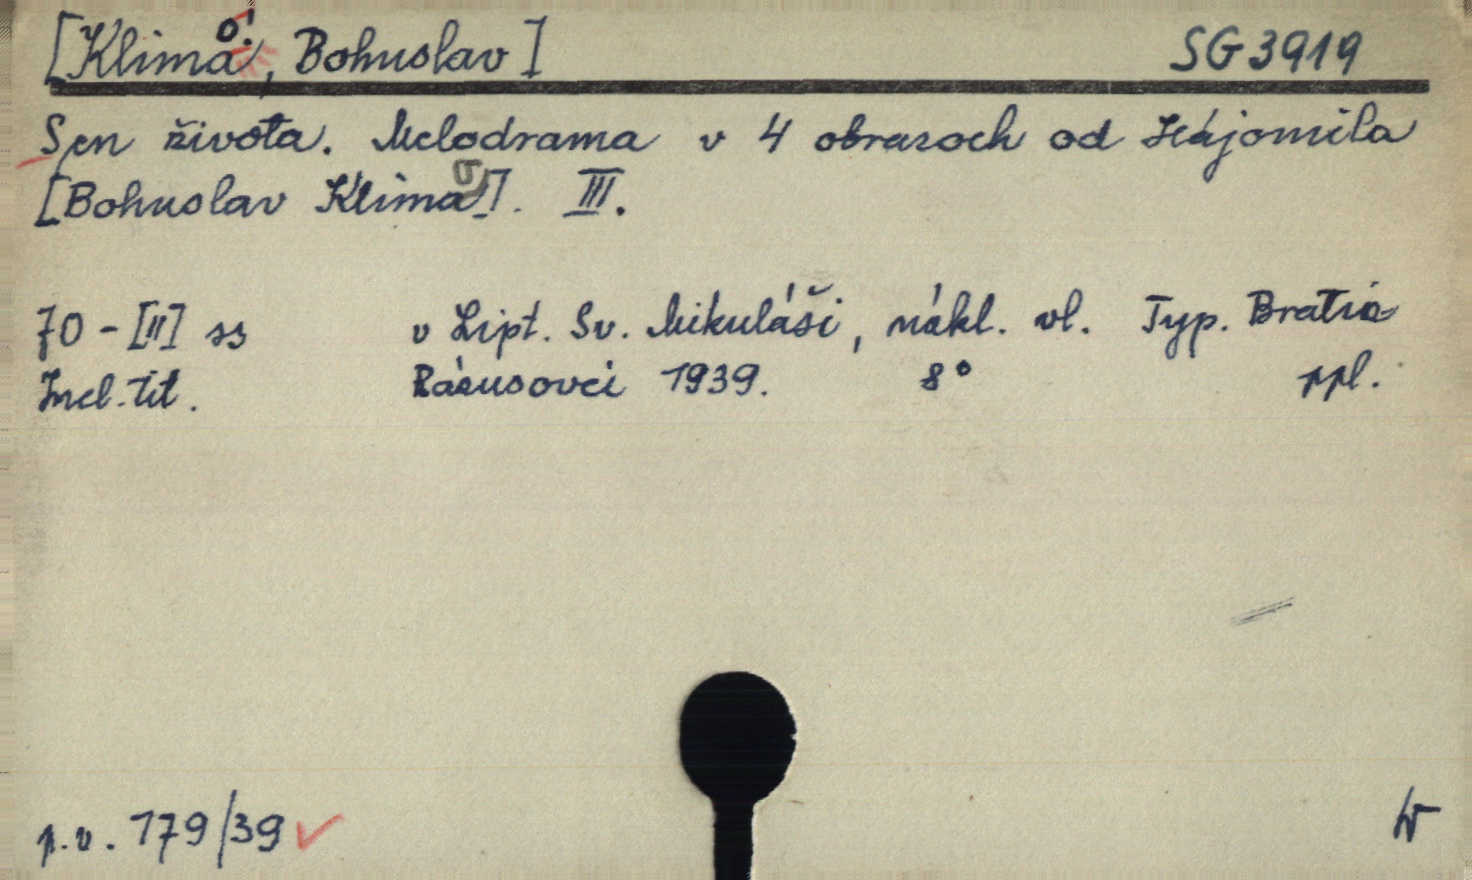 [Klima, Bohuslav] SG 3919
Sen života. Melodrama v 4 obrazoch od Hájomila
[Bohuslav Klima]. III.
70-[II] ss v Lipt. Sv. Mikuláši, nákl. vl. Typ. Bratia
Incl. tit. Rázusovci 1939. 8° ppl.
p.v. 179/39